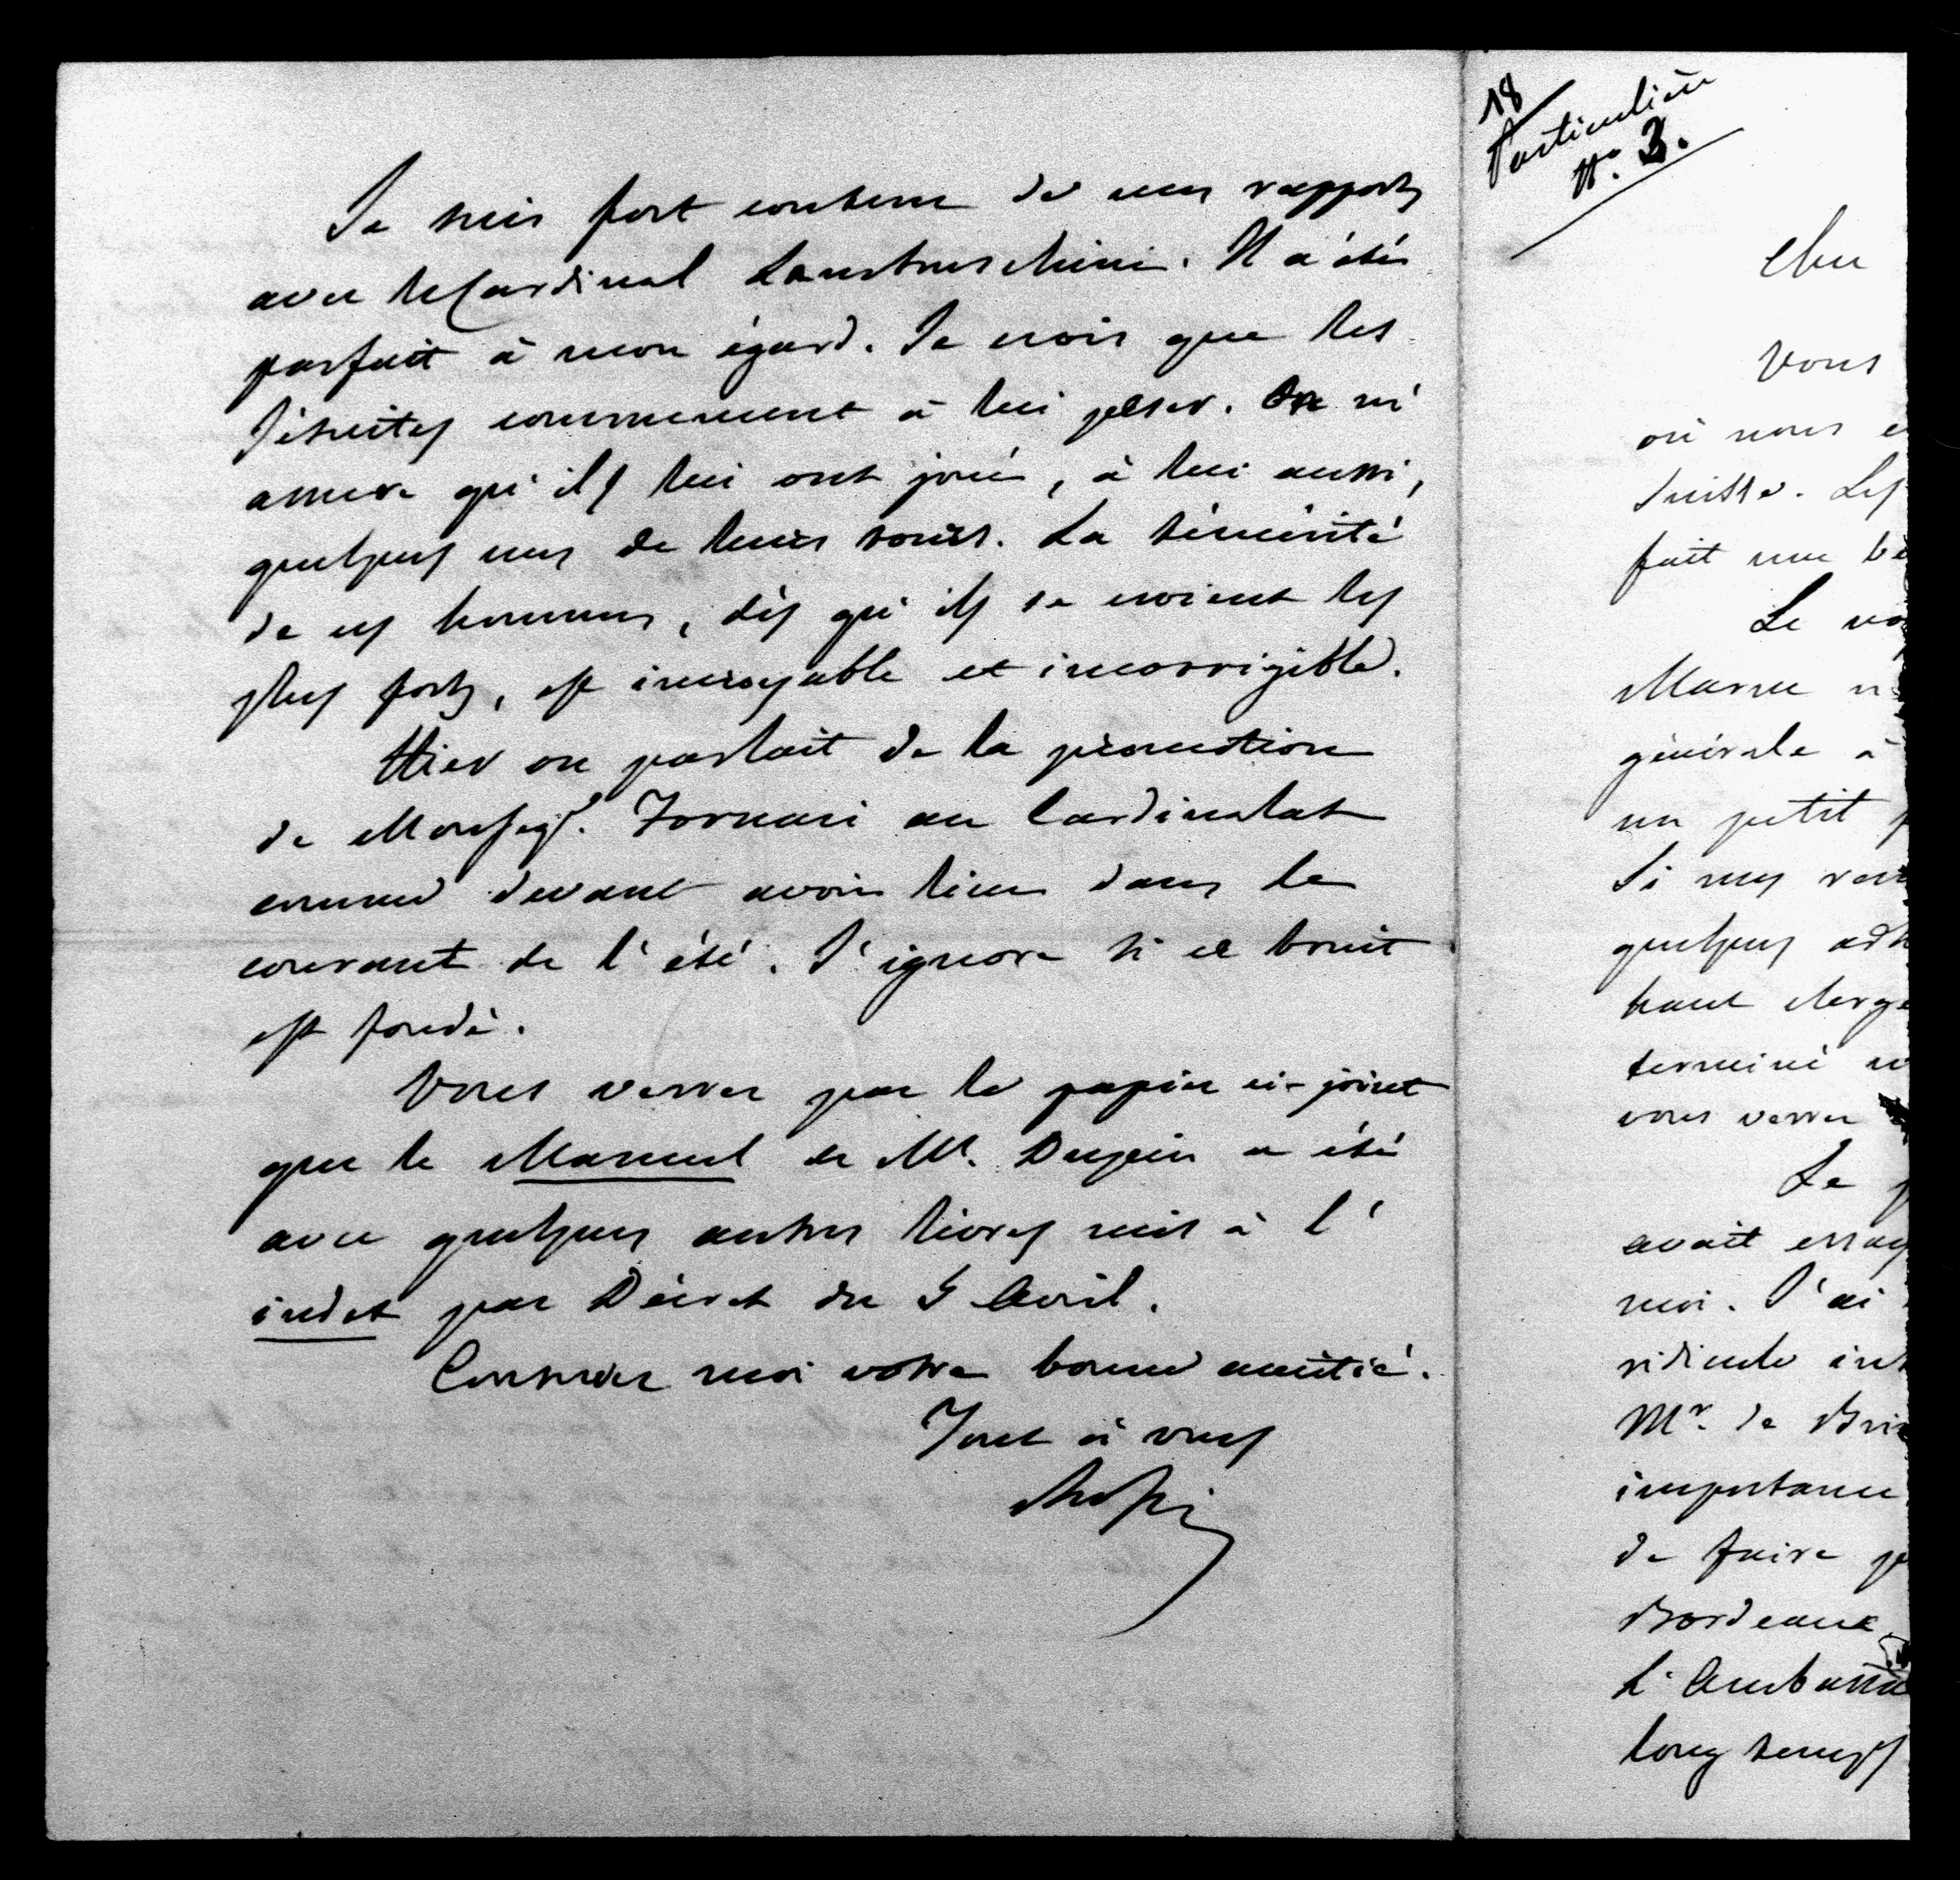 Je suis fort content de mes rapports
avec le Cardinal Lambruschini. Il a été
parfait à mon égard. Je crois que les
Jésuites commencent à lui peser. On m'
assure qu'ils lui ont joué, à lui aussi,
quelques uns de leurs tours. La témérité
de ces hommes, dès qu'ils se croient les
plus forts, est incroyable et incorrigible.
Hier on parlait de la promotion
de Monseigr. Fornari au Cardinalat
comme devant avoir lieu dans le
courant de l'été. J'ignore si ce bruit
est fondé.
Vous verrez par le papier ci-joint
que le Manuel de Mr. Dupin a été
avec quelques autres livres mis à l'
index par Décret du 5 Avril.
Conservez moi votre bonne amitié.
Tout à vous
Rossi
18
Particulière
N.o 3.
Cher
Vous
où nous
Suisse. Les
fait une
Le
Masse
générale à
un petit
Si mes
quelques
haut clergé
terminé
vous verrez
Le
avait essay
moi. J'ai
ridicule
Mr. de
importance
de faire
Bordeaux
L'Ambassa
long temps